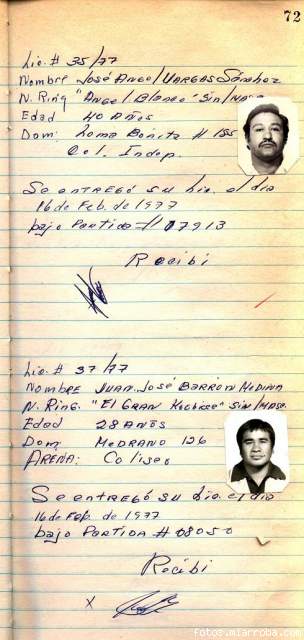 72
Lic. # 35/77
Nombre José Angel Vargas Sánchez
N. Ring "Angel Blanco" Sin/Masc.
Edad 40 Años
Dom: Loma Bonita # 155
Col. Indep.
Se entregó su Lic. el dia
16 de Feb. de 1977
bajo Partida # 07913
Recibi
Lic. # 37/77
Nombre Juan José Barron Medina
N. Ring. "El Gran" Sin/Masc.
Edad 28 Años
Dom Medrano 126
Arena: Coliseo
Se entregó su Lic. el dia
16 de Feb. de 1977
bajo Partida # 08050
Recibi
X
fotos.miarroba.com